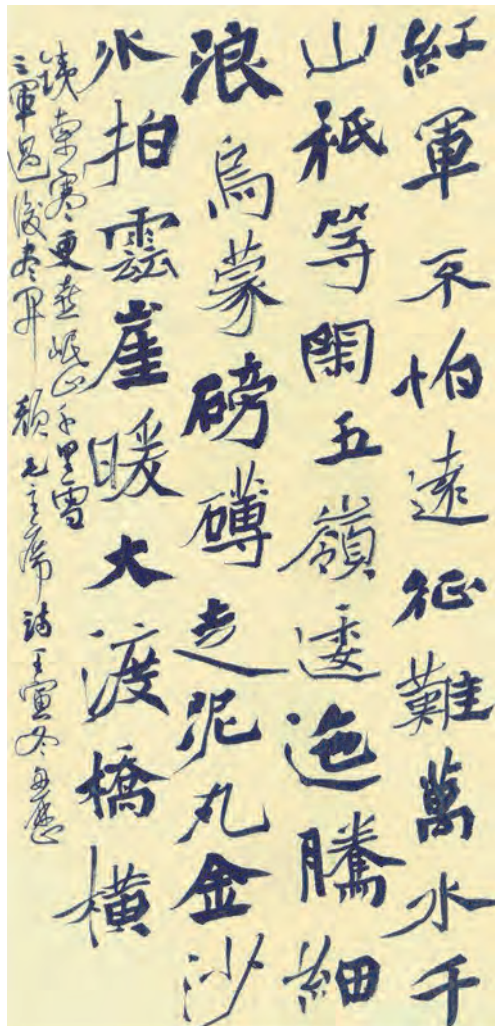 紅軍不怕遠征難萬水千
山祇等閑五嶺逶迤騰細
浪烏蒙磅礴走泥丸金沙
水拍雲崖暖大渡橋橫
鐵索寒更喜岷山千里雪
三軍過後盡開顏 毛主席詩 壬寅冬